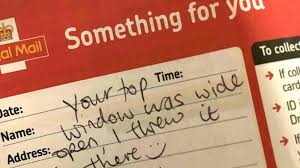 Something for you
Royal Mail
To collect
Date:
Time:
Name:
Your top
window was wide
open I threw it
there :)
If coll
card
ID